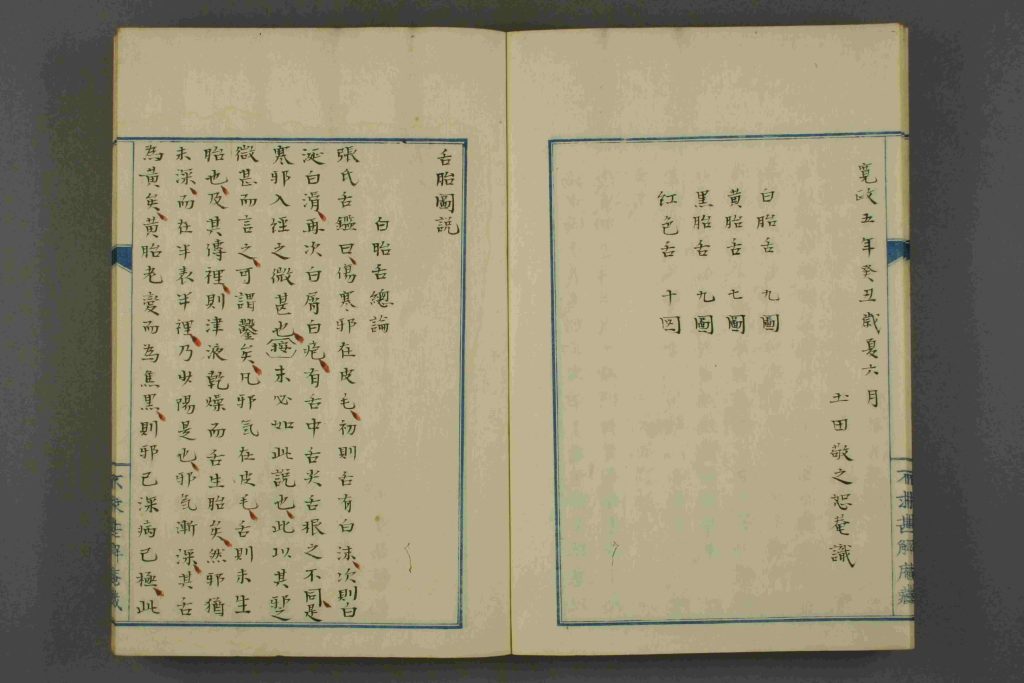 寛政五年癸丑歳夏六月
土田敬之恕菴識
白胎舌 九圖
黄胎舌 七圖
黒胎舌 九圖
紅色舌 十四
舌胎圖説
白胎舌總論
張氏舌鑑曰傷寒邪在皮毛初則舌有白沫次則白
涎白滑再次白屑白疱有舌中舌尖舌根之不同是
寒邪入經之微甚也按未必如此説也此以其邪之
微甚而言之可謂鑿矣凡邪氣在皮毛舌則未生
胎也及其傳裡則津液乾燥而舌生胎矣然邪猶
未深而在半表半裡乃少陽是也邪氣漸深其舌
為黄矣黄胎老變而為焦黒則邪已深病已極此